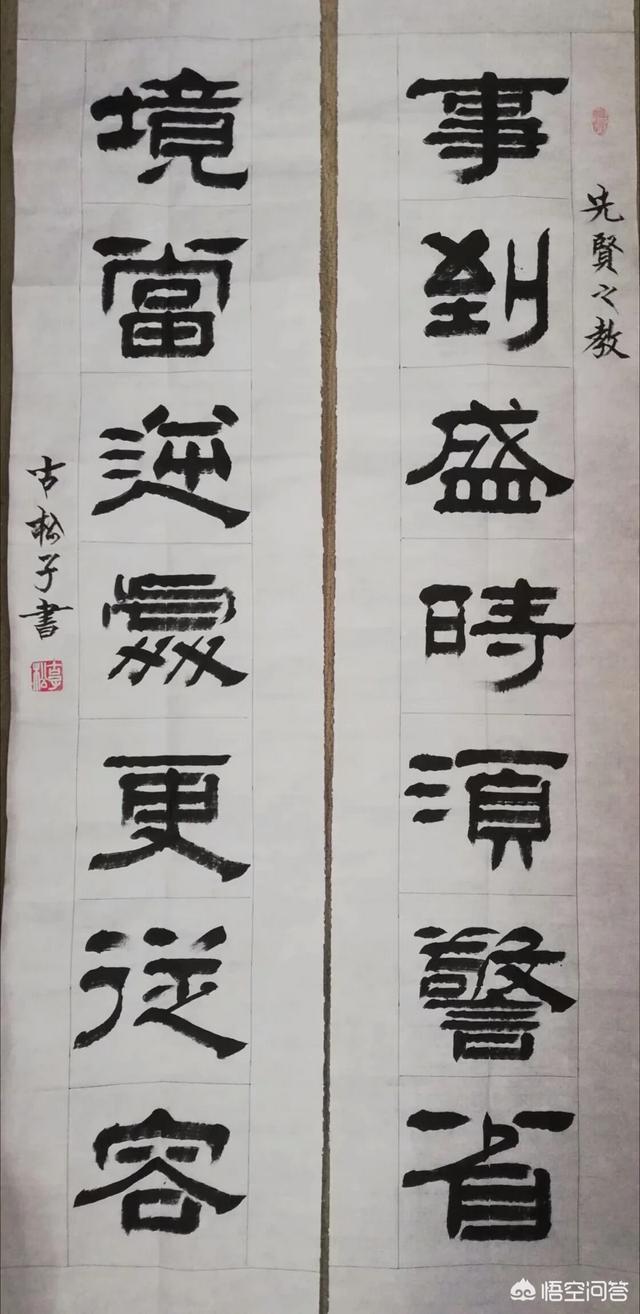 先賢之教
事到盛時須警省
境當逆處更從容
古松子書
悟空问答